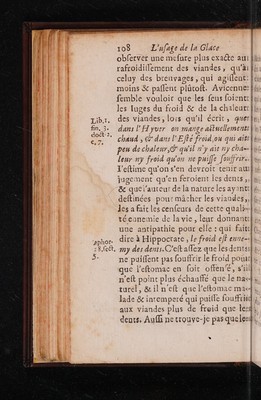 108 L'usage de la Glace
observer une mesure plus exacte au
rafroidissement des viandes, qu'à
celuy des breuvages, qui agissent
moins & passent plûtost. Avicenne
semble vouloir que les dens soient
les juges du froid & de la chaleur
des viandes, lors qu'il écrit, que
dans l'Hyver on mange actuellement
chaud, & dans l'Esté froid ou qui ait
peu de chaleur, & qu'il n'y ait ny chaleur ny froid qu'on ne puisse souffrir.
J'estime qu'on s'en devroit tenir au
jugement qu'en feroient les dents,
& que l'auteur de la nature les ayant
destinées pour mâcher les viandes,
les a fait les censeurs de cette qualité
ennemie de la vie, leur donnant
une antipathie pour elle : qui fait
dire à Hippocrate, le froid est ennemy
des dents. C'est assez que les dents
ne puissent pas souffrir le froid pour
que l'estomac en soit offensé, s'il
n'est point plus échauffé que le naturel,
& il n'est que l'estomac malade
& intemperé qui puisse souffrir
aux viandes plus de froid que les
dents. Aussi ne trouve-je pas que les
Lib. 1.
fin. 3.
doct. 2.
c. 7.
aphor.
18. sect.
5.